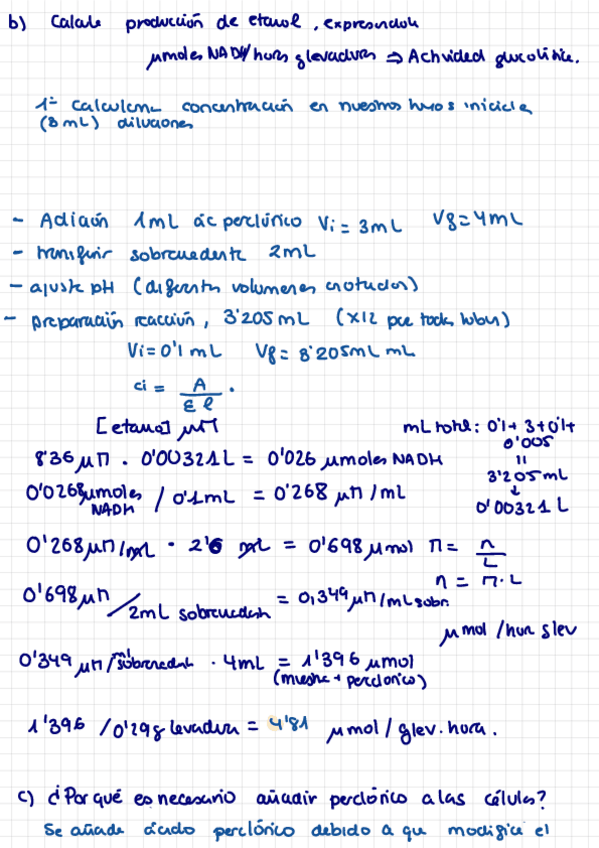 b) Calcula producción de etanol, expresándola
μmoles NADH/hora g levadura ⇒ Actividad glucolítica.
1º Calculamos concentración en nuestros tubos iniciales
(3 mL) diluciones
- Adición 1mL ác perclórico Vi = 3mL Vf = 4mL
- transferir sobrenadante 2mL
- ajuste pH (diferentes volúmenes anotados)
- preparación reacción, 3'205 mL (x12 para todos tubos)
Vi = 0'1 mL Vf = 3'205mL mL
ci = A / ε l .
[etanol] μM
mL total: 0'1 + 3 + 0'1 +
0'005
=
3'205 mL
↓
0'00321 L
8'36 μM · 0'00321L = 0'026 μmoles NADH
0'0268 μmoles NADH / 0'1mL = 0'268 μM/mL
0'268 μM/mL · 2'6 mL = 0'698 μmol M = n / L
n = M · L
0'698 μM / 2mL sobrenadante = 0,349 μM/mL sobr.
μmol / hora g lev
0'349 μM/ml sobrenadante · 4mL = 1'396 μmol
(muestra + perclórico)
1'396 / 0'29g levadura = 4'81 μmol / g lev. hora.
c) ¿Por qué es necesario añadir perclórico a las células?
Se añade ácido perclórico debido a que modifica el